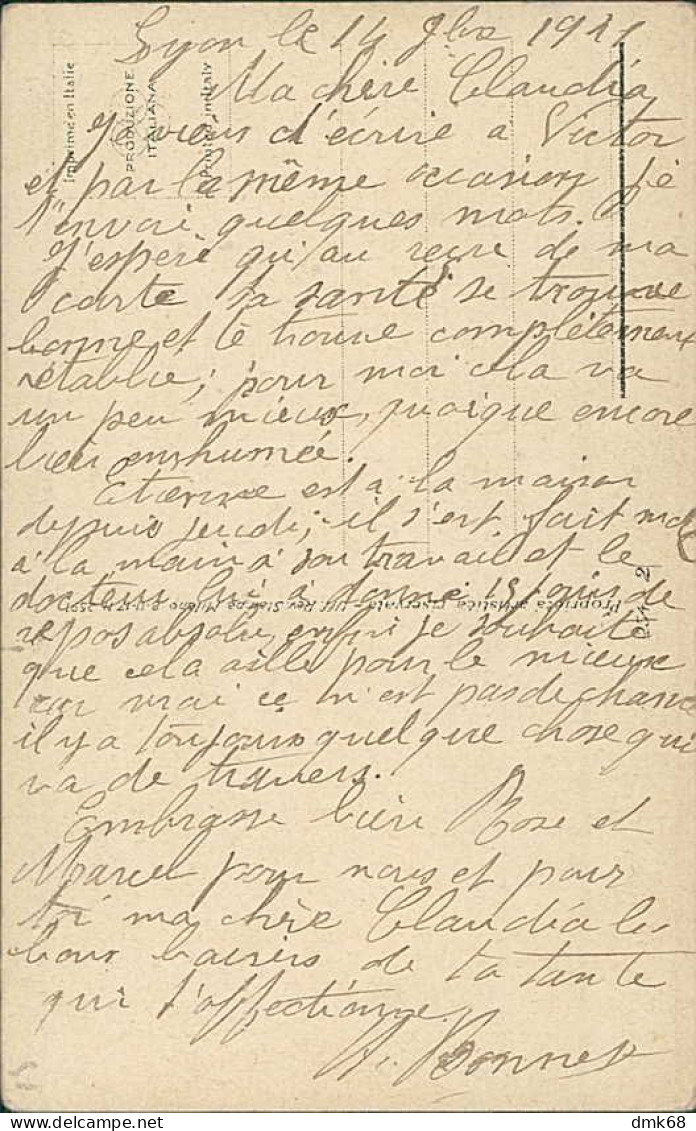 Lyon le 14 9bre 1921
Ma chère Claudia
Je viens d'écrire a Victor
et par la même occasion je
t'envoi quelques mots.
J'espère qu'au reçue de ma
carte ta santé se trouve
bonne et te trouve complètement
rétablie; pour moi cela va
un peu mieux, quoique encore
bien enrhumée.
Etienne est a la maison
depuis jeudi; il s'est fait mal
à la main à son travail et le
docteur lui à donné 15 jours de
repos absolu, enfin je souhaite
que cela aille pour le mieux
car vrai ce n'est pas de chance
il y a toujours quelque chose qui
va de travers.
Embrasse bien Rose et
Marcel pour nous et pour
toi ma chère Claudia les
bons baisers de ta tante
qui t'affectionne.
Bonnet
Imprimé en Italie
PRODUZIONE
ITALIANA
Printed in Italy
Proprietà artistica riservata - Rev. Stampa Milano
2
dmk68